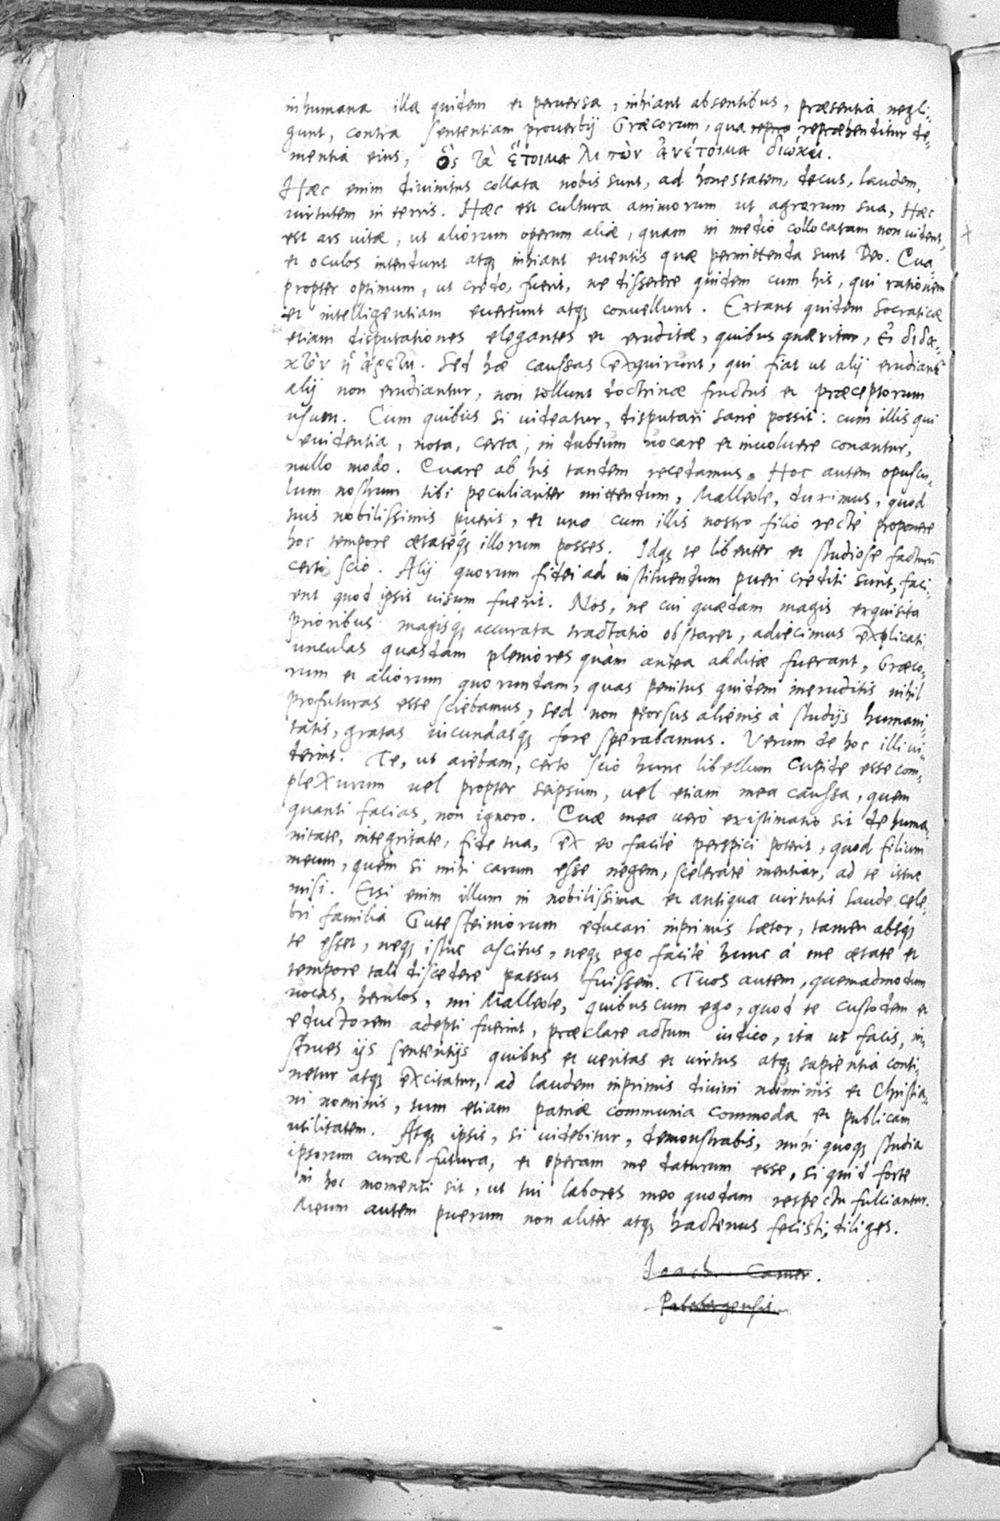 inhumana illa quidem et peruersa, inhiant absentibus, præsentia negli-
gunt, contra sententiam prouerbij Græcorum, qua repræhenditur de-
mentia eius, ὃς τὰ ἕτοιμα λιπὼν ἀνέτοιμα διώκει.
Hæc enim diuinitus collata nobis sunt, ad honestatem, decus, laudem,
uirtutem in terris. Hæc est cultura animorum ut agrorum sua, Hæc
est ars uitæ, ut aliorum operum aliæ, quam in medio collocatam non uident,
et oculos intendunt atq; inhiant euentis quæ permittenda sunt Deo. Qua-
propter optimum, ut credo, fuerit, ne disserere quidem cum his, qui rationem
et intelligentiam euertunt atq; conuellunt. Extant quidem Socraticæ
etiam disputationes elegantes et eruditæ, quibus quæritur, εἰ διδα-
κτὸν ἡ ἀρετή. Sed hæ caussas exquirunt, qui fiat ut alij erudiant
alij non erudiantur, non tollunt doctrinæ fructus et præceptorum
usum. Cum quibus si uideatur, disputari sane possit: cum illis qui
euidentia, nota, certa, in dubium uocare et inuoluere conantur,
nullo modo. Quare ab his tandem recedamus. Hoc autem opuscu-
lum nostrum tibi peculiariter mittendum, Malleole, duximus, quod
tuis nobilissimis pueris, et uno cum illis nostro filio recte proponere
hoc tempore ætateq; illorum posses. Idq; te libenter et studiose facturum
certo scio. Alij quorum fidei ad instituendum pueri crediti sunt, faci-
ent quod ipsis uisum fuerit. Nos, ne cui quædam magis exquisita
prioribus magisq; accurata tractatio obstaret, adiecimus explicati-
unculas quasdam pleniores quàm antea additæ fuerant, Græco-
rum et aliorum quorundam, quas penitus quidem ineruditis nihil
profuturas esse sciebamus, sed non prorsus alienis à studijs humani-
tatis, gratas iucundasq; fore sperabamus. Verum de hoc illi ui-
derint. Te, ut aiebam, certo scio hunc libellum cupide esse com-
plexurum uel propter seipsum, uel etiam mea caussa, quem
quanti facias, non ignoro. Quæ mea uerò existimatio sit de huma-
nitate, integritate, fide tua, ex eo facilè perspici poterit, quod filium
meum, quem si mihi carum esse negem, sceleratè mentiar, ad te istuc
misi. Etsi enim illum in nobilissima et antiqua uirtutis laude cele-
bri familia Gutesteiniorum educari inprimis lætor, tamen absq;
te esset, neq; istuc ascitus, neq; ego facilè hunc à me ætate et
tempore tali discedere passus fuissem. Tuos autem, quemadmodum
uocas, herulos, mi Malleole, quibuscum ego, quod te custodem et
eductorem adepti fuerint, præclare actum iudico, ita ut facis, in-
strues ijs sententijs quibus et ueritas et uirtus atq; sapientia conti-
netur atq; excitatur, ad laudem inprimis diuini numinis et Christia-
ni nominis, tum etiam patriæ communia commoda et publicam
utilitatem. Atq; ipsis, si uidebitur, demonstrabis, mihi quoq; studia
ipsorum curæ futura, et operam me daturum esse, si quid forte
in hoc momenti sit, ut tui labores meo quodam respectu fulciantur.
Meum autem puerum non aliter atq; hactenus fecisti, diliges.
Ioach. Camer.
Pabebergensis